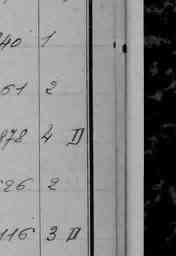 40 1
61 2
878 4 D
626 2
116 3 D